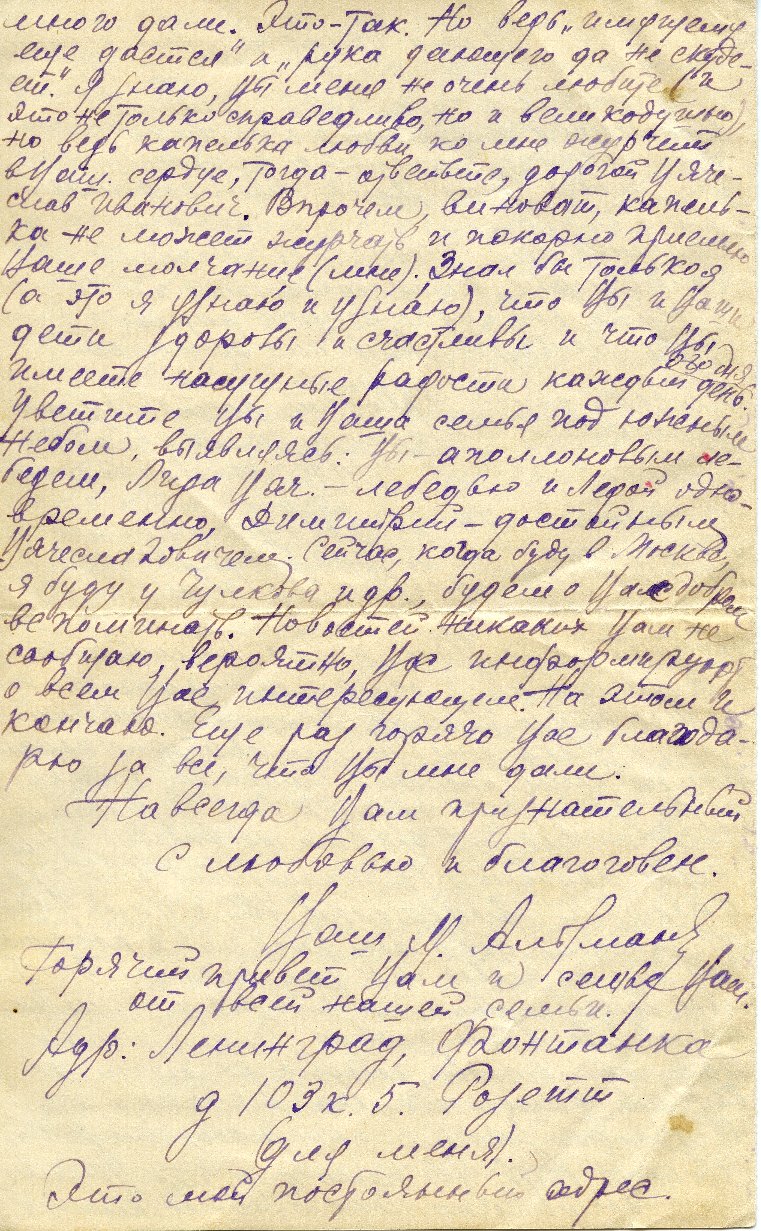 много дали. Это-так. Но ведь „имущему
еще дастся" и „рука дающего да не скуде-
ет." Я знаю, Вы меня не очень любите (и
это не только справедливо, но и великодушно),
но ведь капелька любви ко мне журчит
в Ваш. сердце, тогда-ответьте, дорогой Вяче-
слав Иванович. Впрочем, виноват, капель-
ка не может журчать и покорно приемлю
Ваше молчание (мне). Знал бы только я
(а это я узнаю и узнаю), что Вы и Ваши
дети здоровы и счастливы и что Вы
имеете насущные радости каждый день.
Цветите Вы и Ваша семья под южным
небом, выявляясь: Вы-аполлоновым ле-
бедем, Лида Вяч.-лебедью и Ледой одно-
временно, Димитрий-достойным
Вячеславовичем. Сейчас, когда буду в Москве,
я буду у Чулкова и др., будем о Вас добром
вспоминать. Новостей никаких Вам не
сообщаю, вероятно, Вас информируют
о всем Вас интересующем. На этом и
кончаю. Еще раз горячо Вас благода-
рю за все, что Вы мне дали.
Навсегда Вам признательный
с любовью и благоговен.
Ваш М. Альтман
Горячий привет Вам и семье Ваш.
от всей нашей семьи.
Адр: Ленинград, Фонтанка
д 103 к. 5. Розетт
(для меня).
Это мой постоянный адрес.